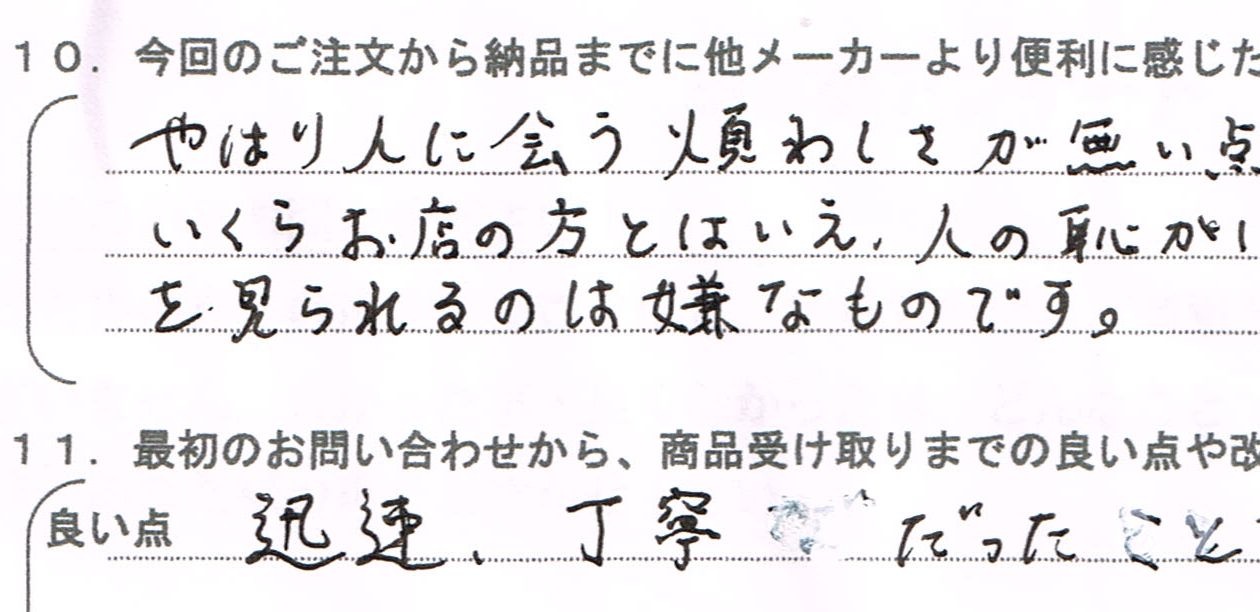 10．今回のご注文から納品までに他メーカーより便利に感じた
やはり人に会う煩わしさが無い点
いくらお店の方とはいえ、人の恥がi
を見られるのは嫌なものです。
11．最初のお問い合わせから、商品受け取りまでの良い点や改
良い点 迅速、丁寧 だったこと